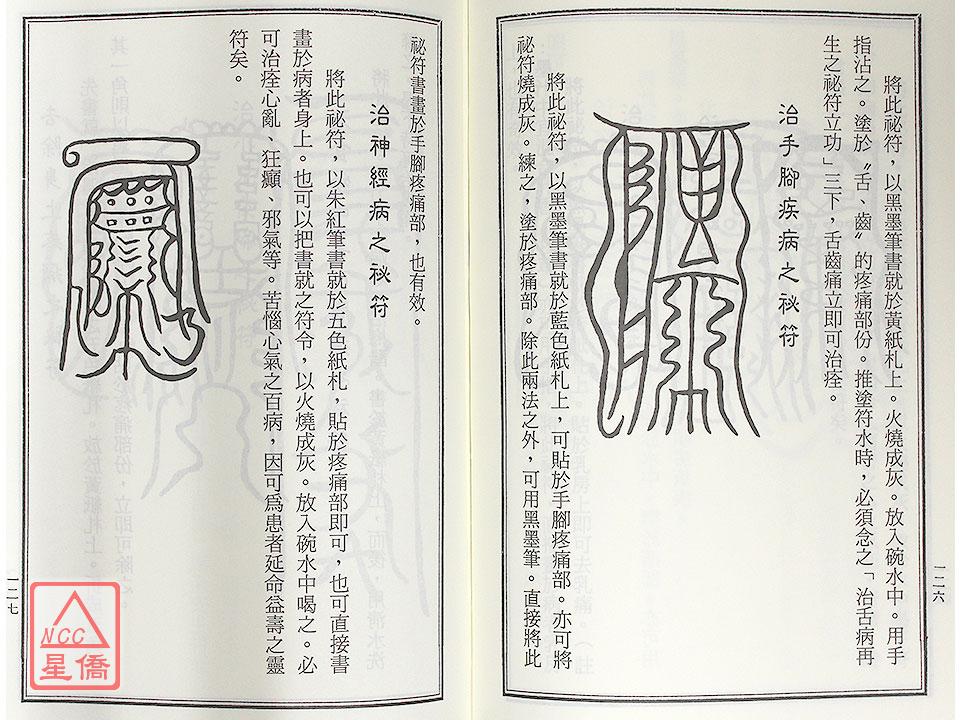 將此祕符，以黑墨筆書就於黃紙札上。火燒成灰。放入碗水中。用手
指沾之。塗於〝舌、齒〞的疼痛部份。推塗符水時，必須念之「治舌病再
生之祕符立功」三下，舌齒痛立即可治痊。
治手腳疾病之祕符
將此祕符，以黑墨筆書就於藍色紙札上，可貼於手腳疼痛部。亦可將
祕符燒成灰。練之，塗於疼痛部。除此兩法之外，可用黑墨筆。直接將此
一二六
祕符書畫於手腳疼痛部，也有效。
治神經病之祕符
將此祕符，以朱紅筆書就於五色紙札，貼於疼痛部即可，也可直接書
畫於病者身上。也可以把書就之符令，以火燒成灰。放入碗水中喝之。必
可治痊心亂、狂癲、邪氣等。苦惱心氣之百病，因可爲患者延命益壽之靈
符矣。
一二七
NCC
星僑